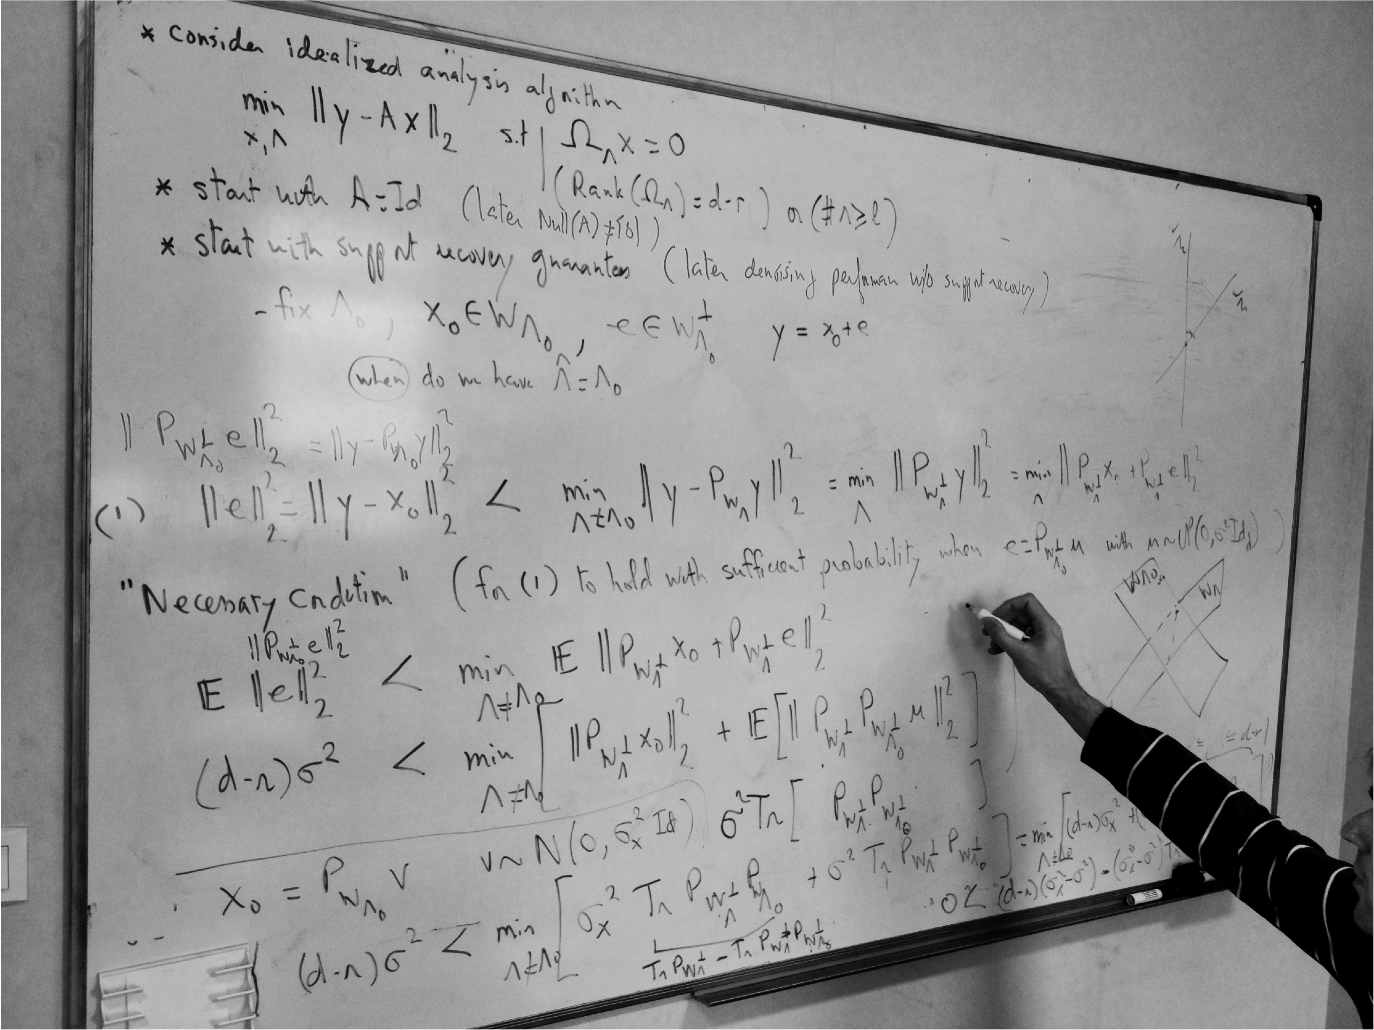 * consider idealized "analysis" algorithm
min_{x,Λ} ‖y - Ax‖_2 s.t | Ω_Λ x = 0
(Rank(Ω_Λ) = d-r) or (#Λ ≥ ℓ)
* start with A = Id (later Null(A) ≠ {0})
* start with support recovery guarantees (later denoising performan w/o support recovery)
- fix Λ_0, x_0 ∈ W_{Λ_0}, e ∈ W_{Λ_0}^⊥ y = x_0 + e
when do we have Λ̂ = Λ_0
‖P_{W_{Λ_0}^⊥} e‖_2^2 = ‖y - P_{W_{Λ_0}} y‖_2^2
(1) ‖e‖_2^2 = ‖y - x_0‖_2^2 < min_{Λ≠Λ_0} ‖y - P_{W_Λ} y‖_2^2 = min_Λ ‖P_{W_Λ^⊥} y‖_2^2 = min_Λ ‖P_{W_Λ^⊥} x_0 + P_{W_Λ^⊥} e‖_2^2
"Necessary Condition" (for (1) to hold with sufficient probability when e = P_{W_{Λ_0}^⊥} u with u ~ N(0, σ^2 Id_d))
W_{Λ_0} W_Λ
‖P_{W_{Λ_0}^⊥} e‖_2^2
E ‖e‖_2^2 < min_{Λ≠Λ_0} E ‖P_{W_Λ^⊥} x_0 + P_{W_Λ^⊥} e‖_2^2
(d-r)σ^2 < min_{Λ≠Λ_0} [ ‖P_{W_Λ^⊥} x_0‖_2^2 + E[‖P_{W_Λ^⊥} P_{W_{Λ_0}^⊥} u‖_2^2]
σ^2 Tr [ P_{W_Λ^⊥} P_{W_{Λ_0}^⊥} ]
x_0 = P_{W_{Λ_0}} v v ~ N(0, σ_x^2 Id)
(d-r)σ^2 < min_{Λ≠Λ_0} [ σ_x^2 Tr P_{W_Λ^⊥} P_{W_{Λ_0}} + σ^2 Tr P_{W_Λ^⊥} P_{W_{Λ_0}^⊥} ] = min_{Λ≠Λ_0} [(d-r)σ_x^2 +
Tr P_{W_Λ^⊥} - Tr P_{W_Λ^⊥} P_{W_{Λ_0}^⊥}
0 < (d-r)(σ_x^2 - σ^2) - (σ_x^2 - σ^2) Tr